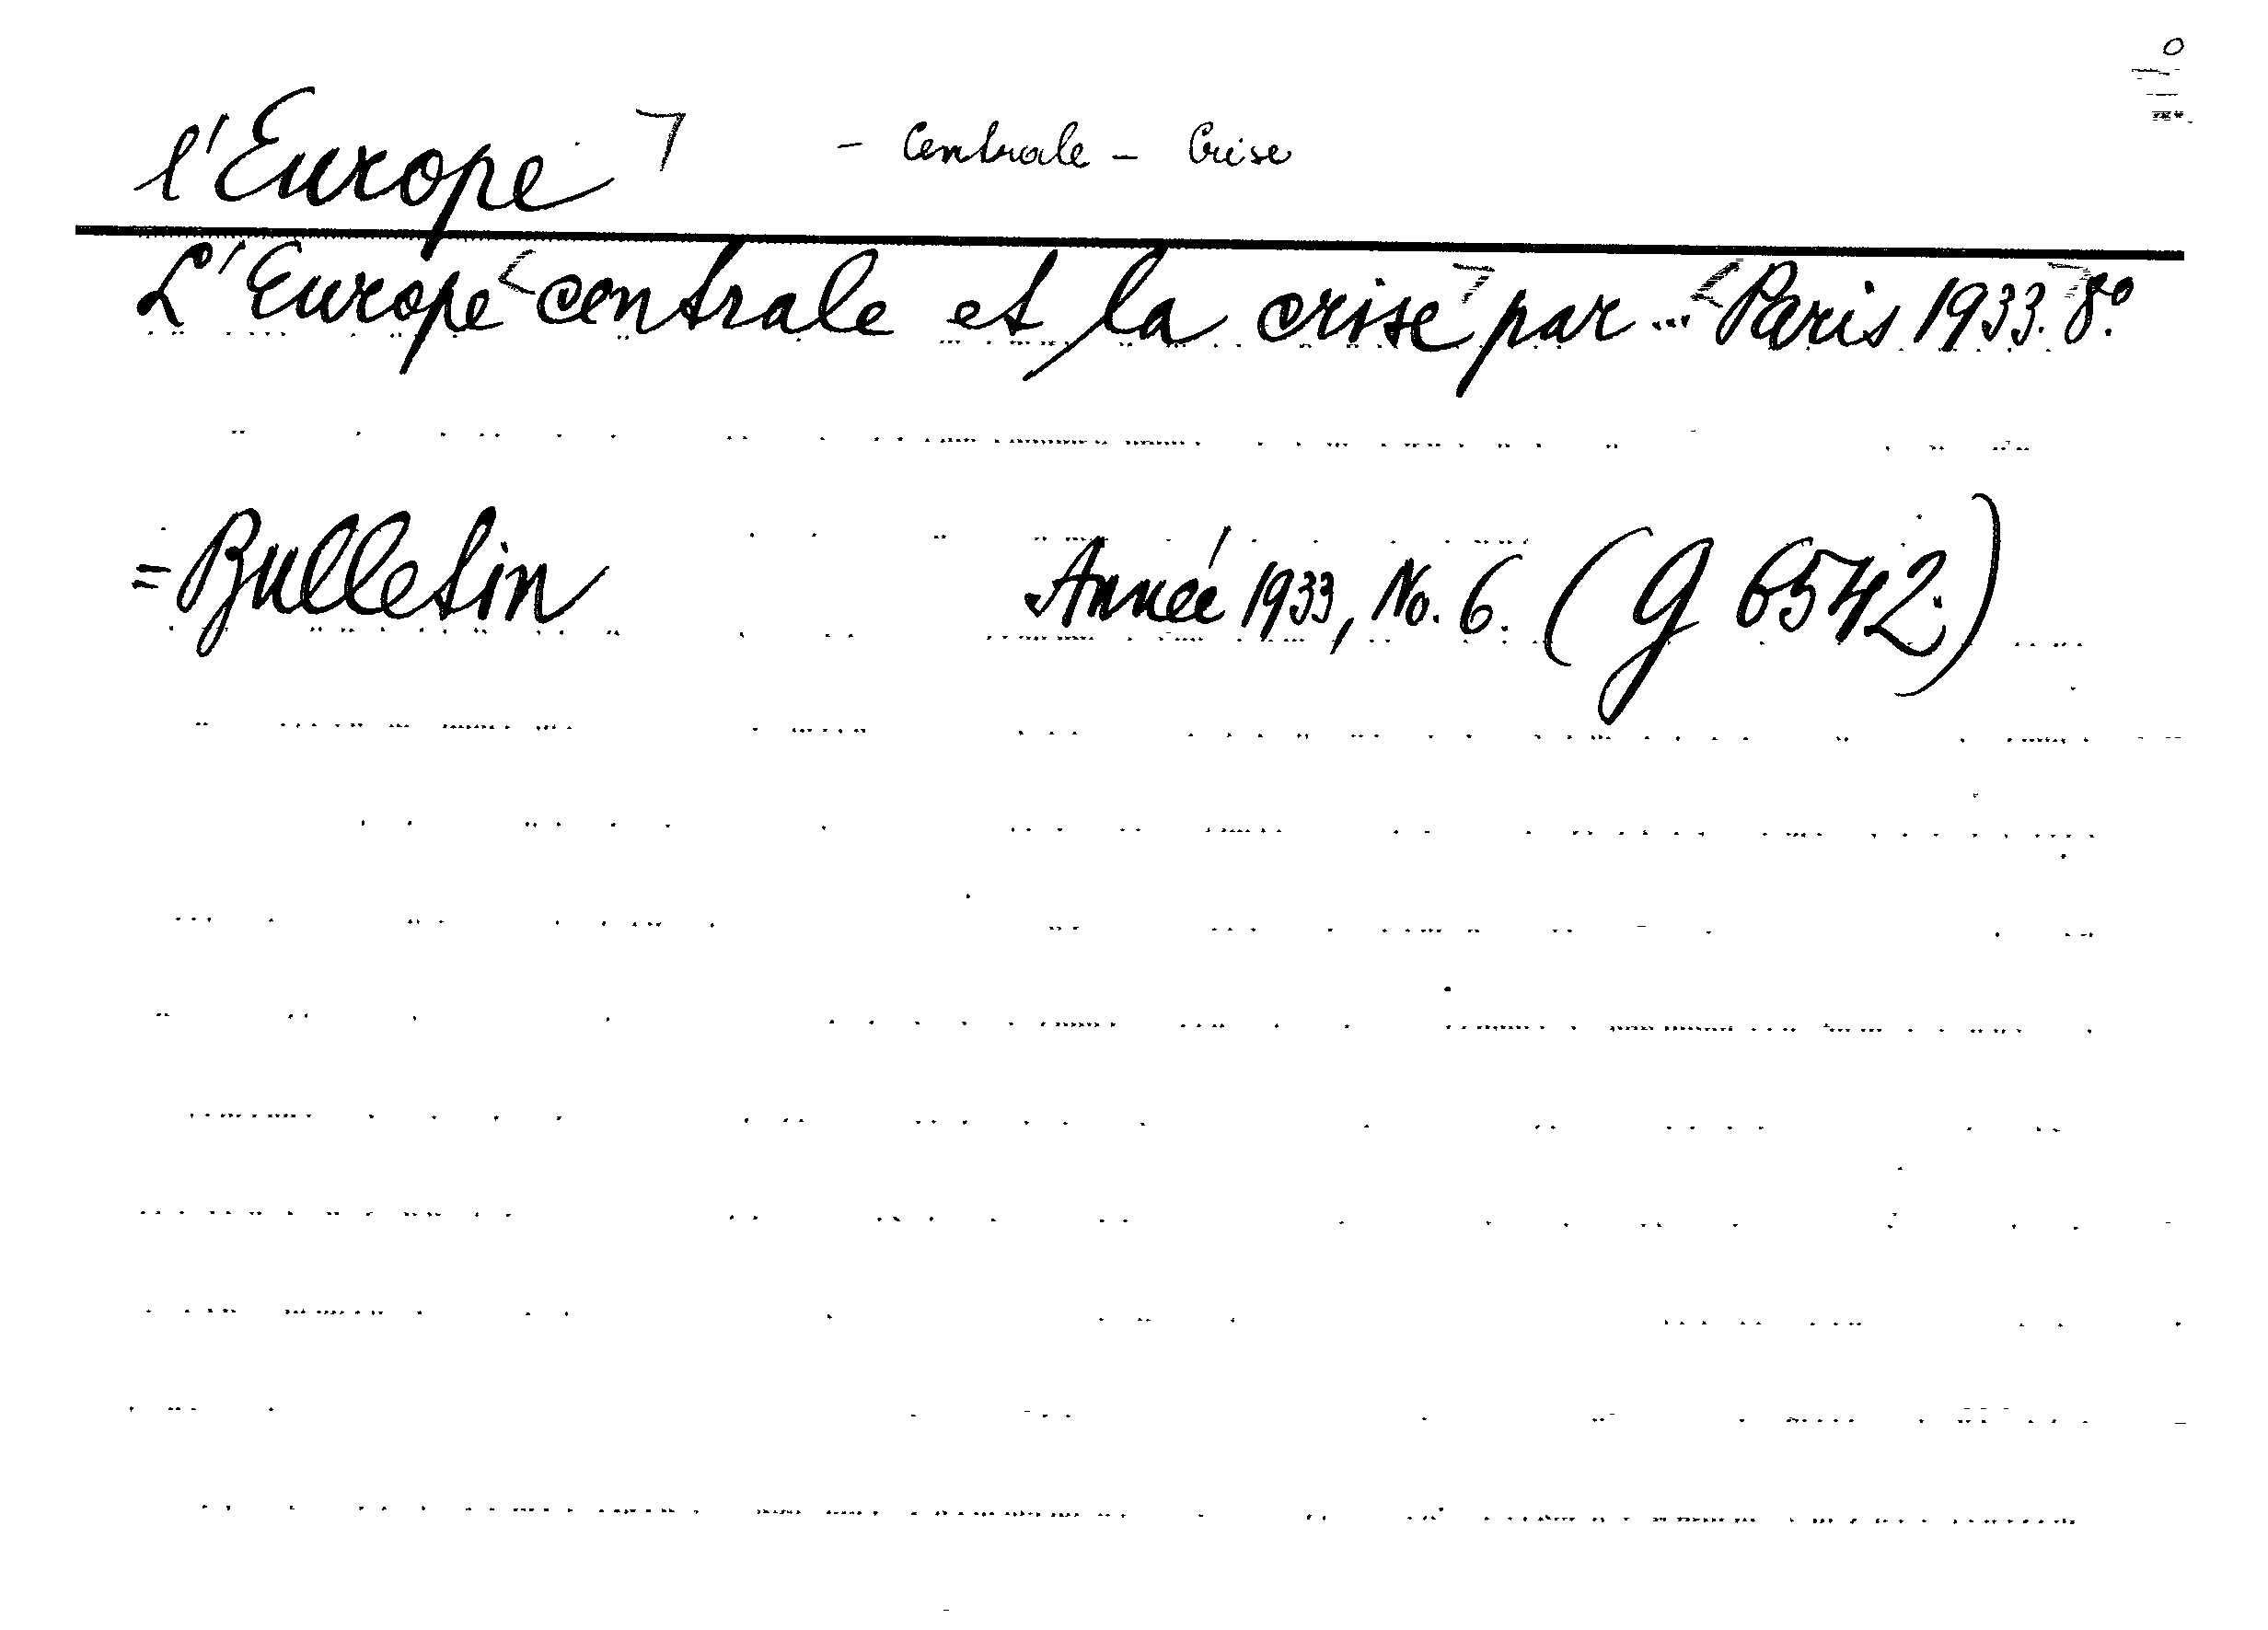 l'Europe ⌝ - Centrale - Crise
L'Europe centrale et la crise par ... Paris 1933. 8º.
= Bulletin Année 1933, No. 6. (G 6542.)